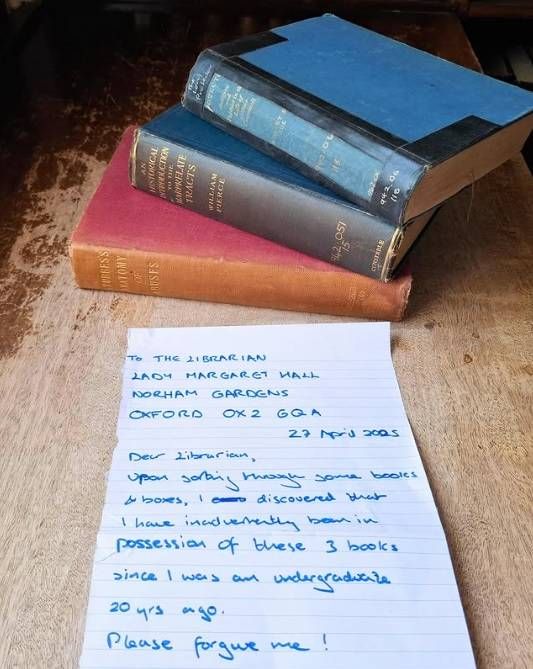 942.06
118
AN
HISTORICAL
INTRODUCTION
TO THE
MARPRELATE
TRACTS
WILLIAM
PIERCE
942.057
15
CONSTABLE
ANATOMY
OF
To THE LIBRARIAN
LADY MARGARET HALL
NORHAM GARDENS
OXFORD OX2 6QA
27 April 2025
Dear Librarian,
Upon sorting through some books
& boxes, I discovered that
I have inadvertently been in
possession of these 3 books
since I was an undergraduate
20 yrs ago.
Please forgive me!